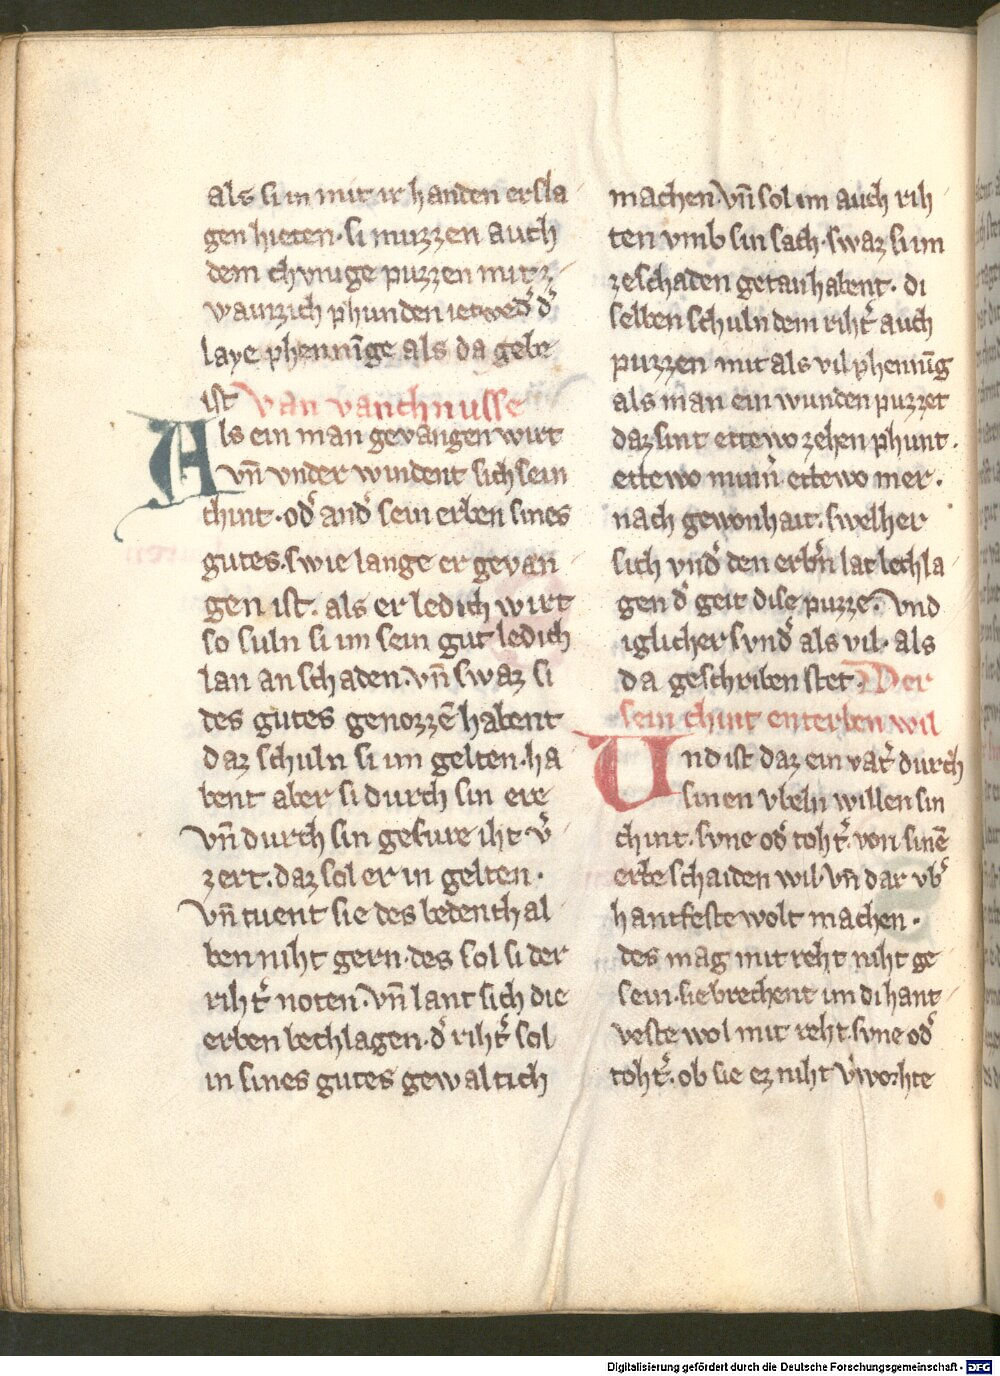 als si in mit ir handen ersla
gen hieten · si muzzen auch
dem chunige puzzen mit z
wainzich phunden ietwed͛ d͛
laye phenni̅ge als da gebe
ist van vanchnusse
Als ein man gevangen wirt
vn̅ vnder windent sich sein
chint · od͛ and͛ sein erben sines
gutes · swie lange er gevan
gen ist · als er ledich wirt
so suln si im sein gut ledich
lan an schaden · vn̅ swaz si
des gutes genozze̅ habent
daz schuln si im gelten · ha
bent aber si durch sin ere
vn̅ durch sin gefure iht v͛
zert · daz sol er in gelten ·
vn̅ tuent sie des bedenthal
ben niht gern · des sol si der
riht͛ noten · vn̅ lant sich die
erben bechlagen · d͛ riht͛ sol
in sines gutes gewaltich
machen · vn̅ sol im auch rih
ten vmb sin sach · swaz si im
ze schaden getan habent · di
selben schuln dem riht͛ auch
puzzen mit als vil phenni̅g
als man ein wunden puzzet
daz sint ettewo zehen phunt ·
ettewo minn͛ ettewo mer ·
nach gewonhait · swelher
sich vnd͛ den erb͛n lat bechla
gen d͛ geit dise puzze · vnd
iglicher svnd͛ als vil · als
da geschriben stet · Der
sein chint enterben wil
Und ist daz ein vat͛ durch
sinen vbeln willen sin
chint · svne od͛ toht͛ · von sine̅
erbe schaiden wil · vn̅ dar vb͛
hantfeste wolt machen ·
des mag mit reht niht ge
sein · sie brechent im di hant
veste wol mit reht · svne od͛
toht͛ · ob sie ez niht v͛worhte